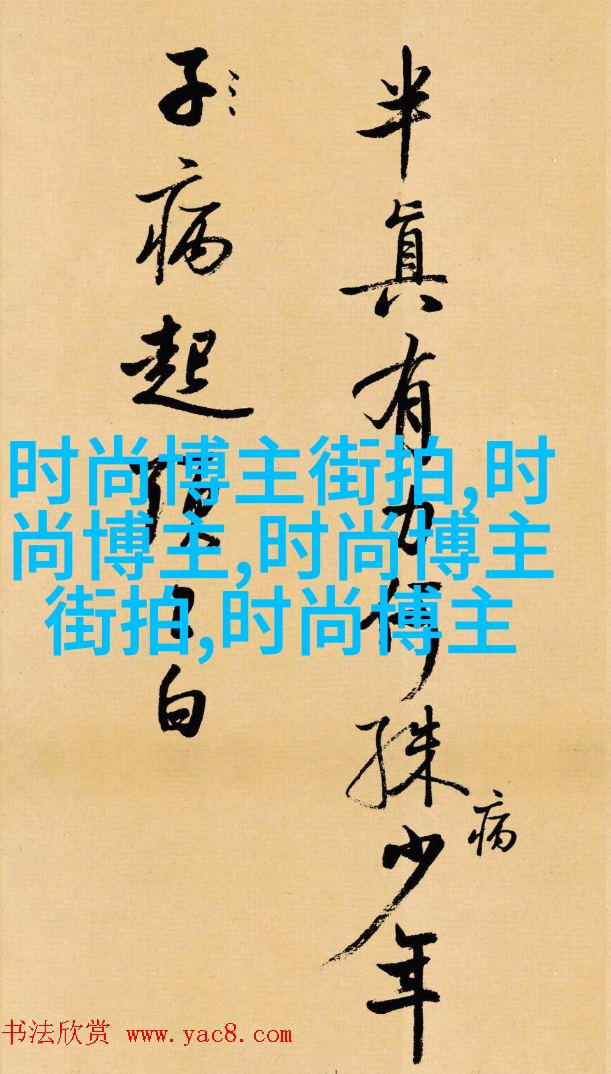 半眞有力何殊少年
病
子病起頭已白
时尚博主街拍,时
尚博主,时尚博主
街拍,时尚博主
书法欣赏 www.yac8.com